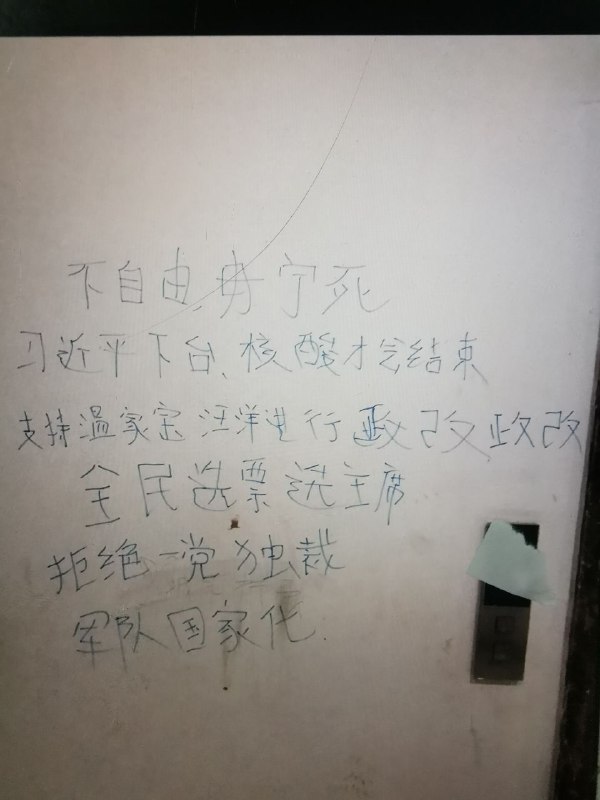 不自由,毋宁死
习近平下台、核酸才会结束
支持温家宝 汪洋进行政改,政改
全民选票选主席
拒绝一党独裁
军队国家化.